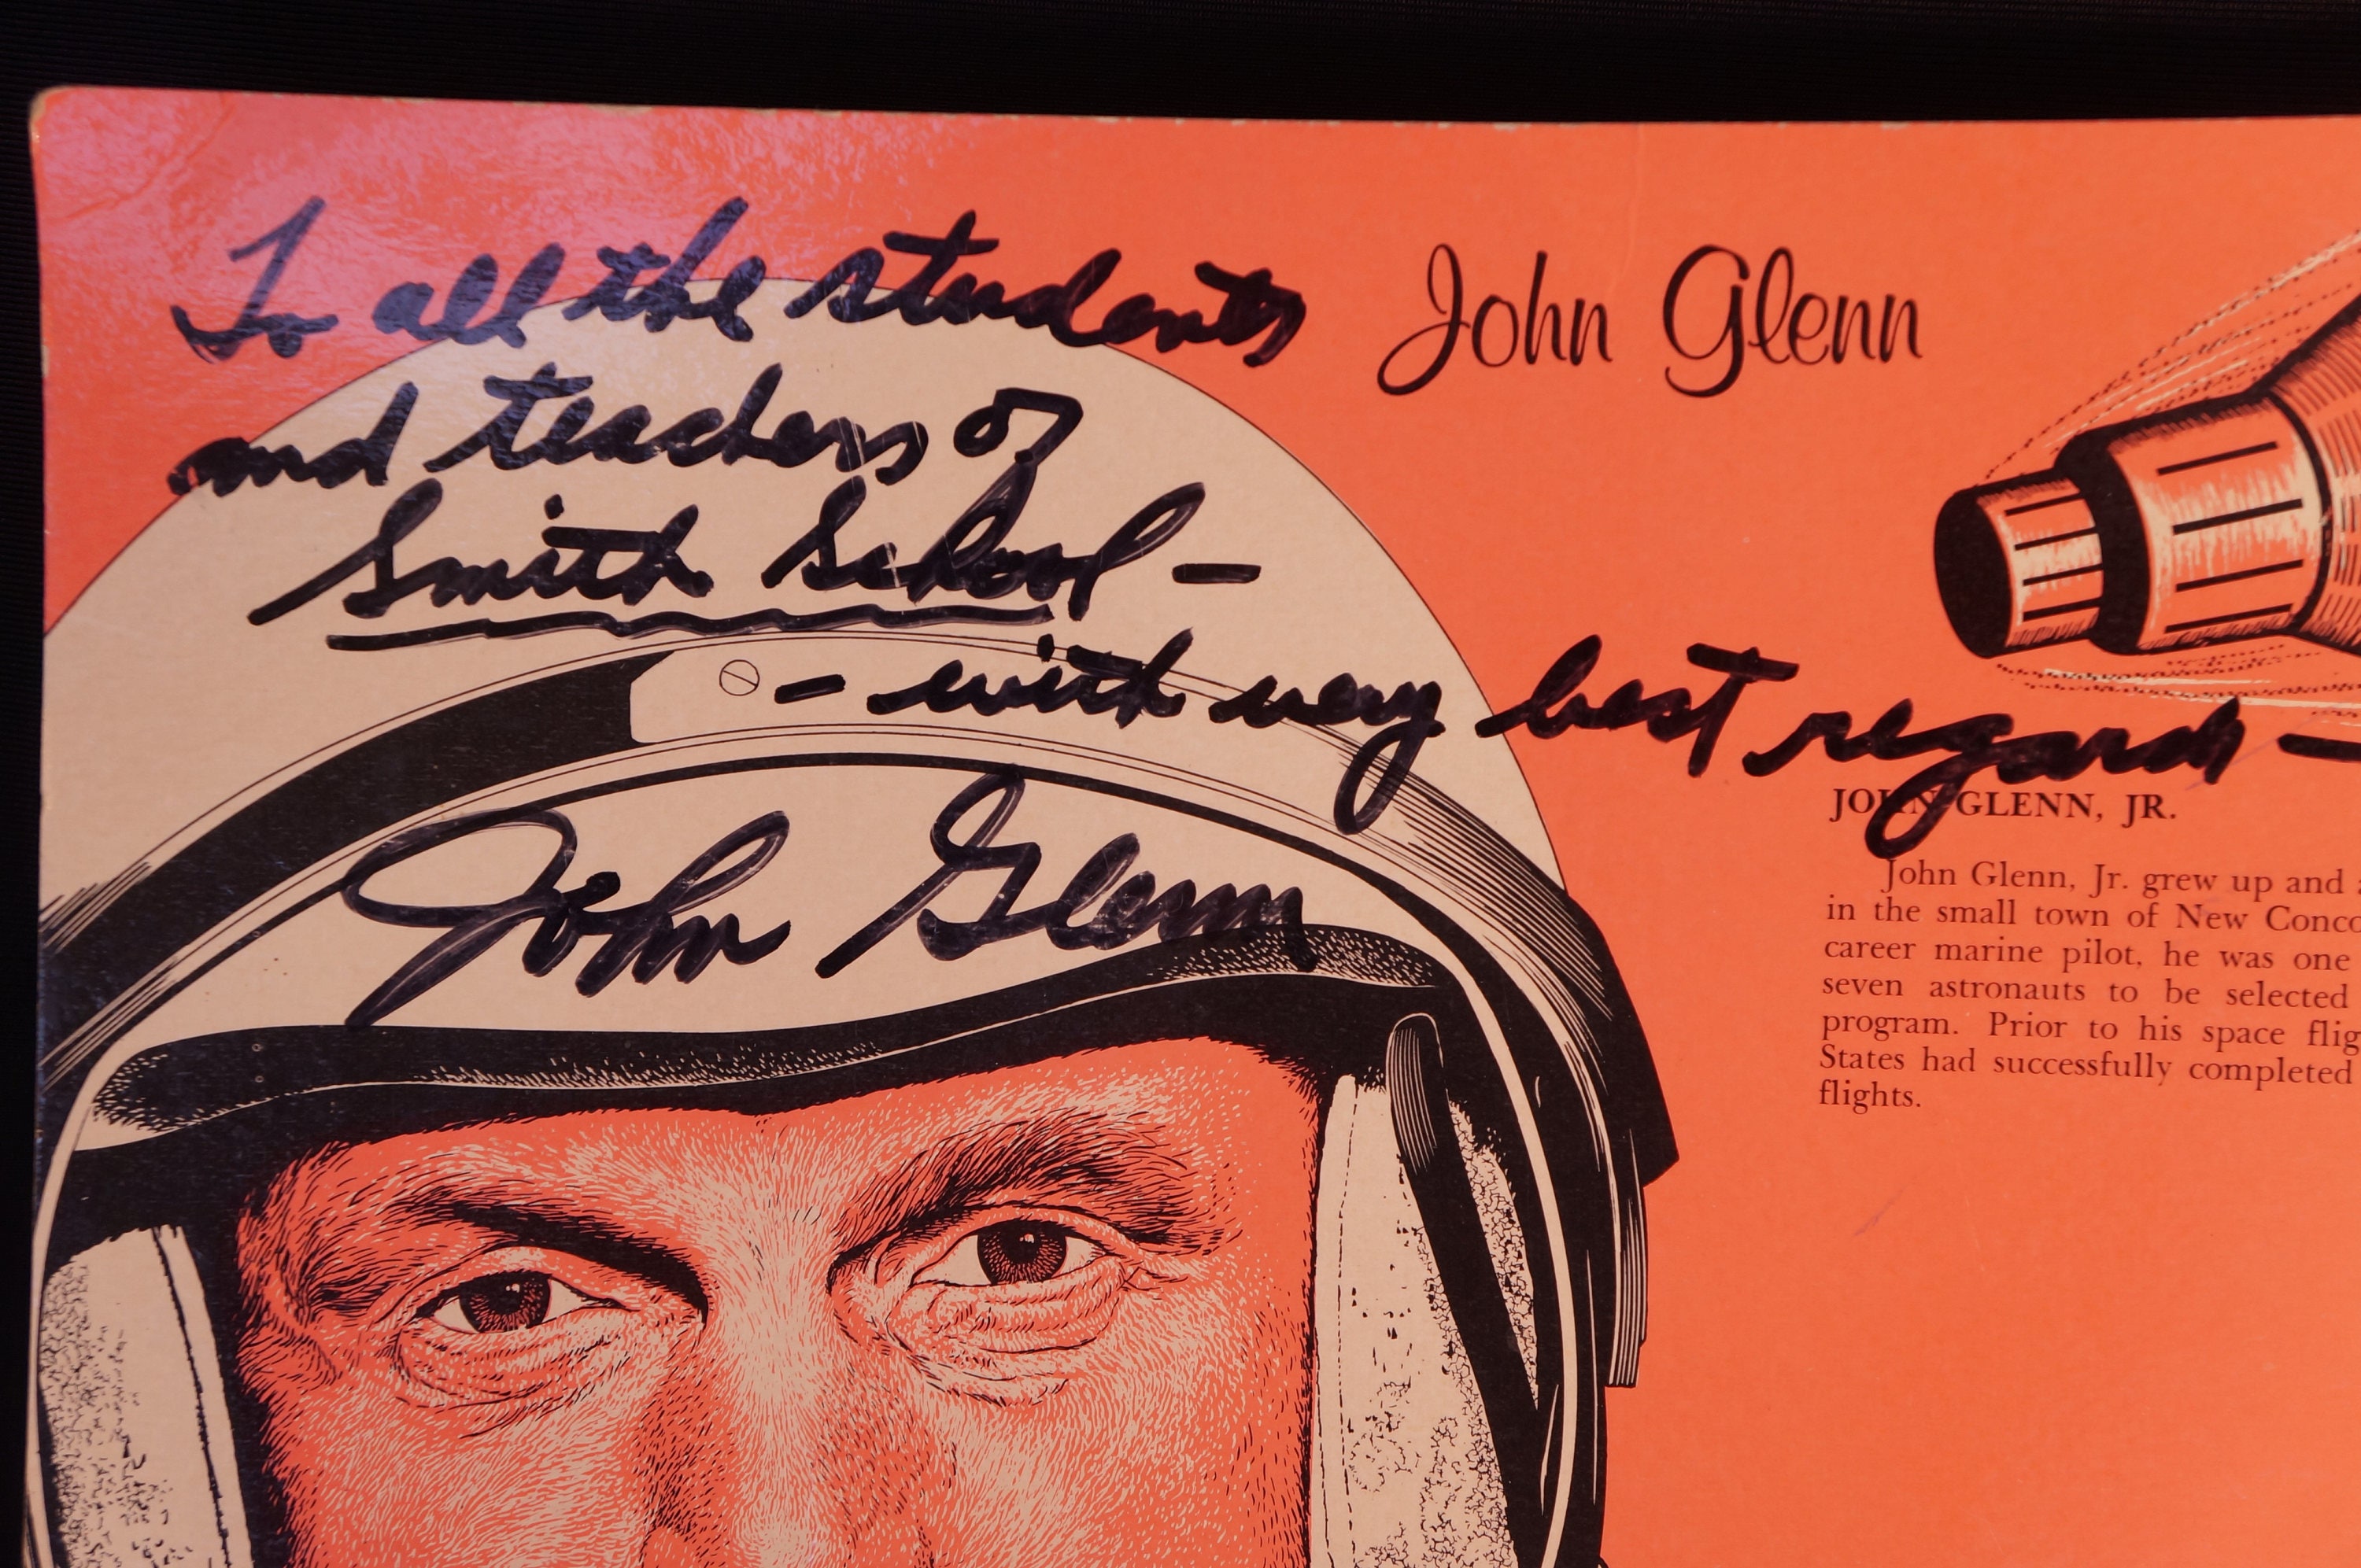 To all the students
and teachers of
Smith School -
- with very best regards -
John Glenn
John Glenn
JOHN GLENN, JR.
John Glenn, Jr. grew up and
in the small town of New
career marine pilot, he was one
seven astronauts to be selected
program. Prior to his space
States had successfully completed
flights.